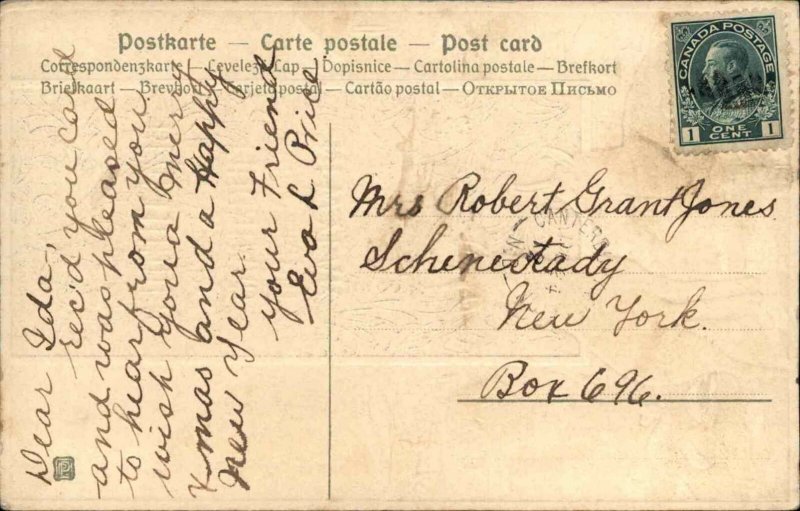 Postkarte — Carte postale — Post card
Correspondenzkarte — Levelező-Lap — Dopisnice — Cartolina postale — Brefkort
Briefkaart — Brevkort — Tarjeta postal — Cartão postal — Открытое Письмо
CANADA POSTAGE
1 ONE CENT 1
Dear Ida,
rec'd you card
and was pleased
to hear from you.
wish you a merry
xmas and a Happy
New Year.
your Friend
Eva L Price.
Mrs Robert Grant Jones
Schenectady
New York.
Box 696.